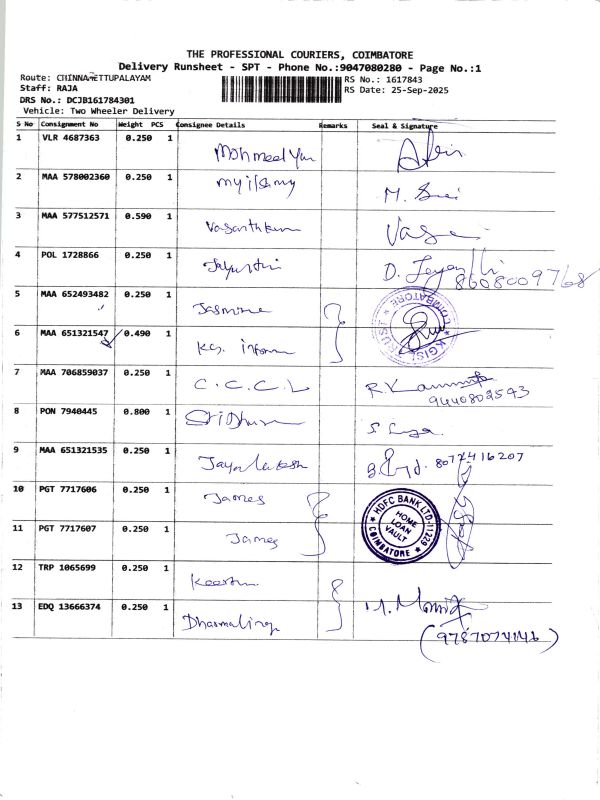 THE PROFESSIONAL COURIERS, COIMBATORE
Delivery Runsheet - SPT - Phone No.:9047080280 - Page No.:1
Route: CHINNAVETTUPALAYAM RS No.: 1617843
Staff: RAJA RS Date: 25-Sep-2025
DRS No.: DCJB161784301
Vehicle: Two Wheeler Delivery
S No Consignment No Weight PCS Consignee Details Remarks Seal & Signature
1 VLR 4687363 0.250 1
2 MAA 578002360 0.250 1
3 MAA 577512571 0.590 1 Vasanthkum Vasa
4 POL 1728866 0.250 1 D. Jayanthi
8608009768
5 MAA 652493482 0.250 1 Jasmine COIMBATORE
6 MAA 651321547 0.490 1 KG. inform
7 MAA 706859037 0.250 1 C.C.C.L
9440802543
8 PON 7940445 0.800 1 SriDhar
9 MAA 651321535 0.250 1 8072416207
10 PGT 7717606 0.250 1 James
HDFC BANK LTD-11229
HOME LOAN VAULT
COIMBATORE
11 PGT 7717607 0.250 1 James
12 TRP 1065699 0.250 1
13 EDQ 13666374 0.250 1 Dharmaling
(9787074146)